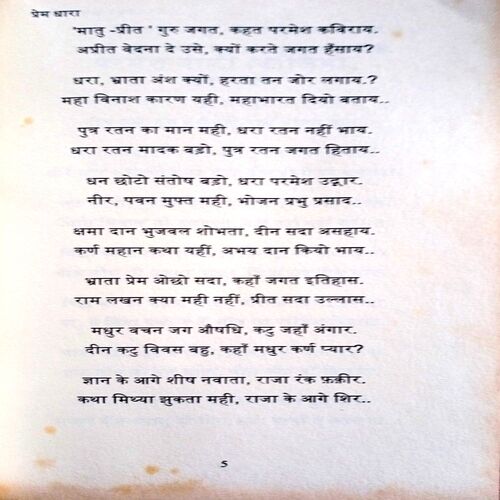 प्रेम धारा
'मातु -प्रीत ' गुरु जगत, कहत परमेश कविराय.
अप्रीत बेदना दे उसे, क्यों करते जगत हँसाय?
धरा, भ्राता अंश क्यों, हरता तन जोर लगाय.?
महा विनाश कारण यही, महाभारत दियो बताय..
पुत्र रतन का मान मही, धरा रतन नहीं भाय.
धरा रतन मादक बड़ो, पुत्र रतन जगत हिताय..
धन छोटो संतोष बड़ो, धरा परमेश उद्गार.
नीर, पवन मुफ्त मही, भोजन प्रभु प्रसाद..
क्षमा दान भुजवल शोभता, दीन सदा असहाय.
कर्ण महान कथा यहीं, अभय दान कियो भाय..
भ्राता प्रेम ओछो सदा, कहाँ जगत इतिहास.
राम लखन क्या मही नहीं, प्रीत सदा उल्लास..
मधुर बचन जग औषधि, कटु जहाँ अंगार.
दीन कटु विवस बहु, कहाँ मधुर कर्ण प्यार?
ज्ञान के आगे शीष नवाता, राजा रंक फ़क़ीर.
कथा मिथ्या झुकता मही, राजा के आगे शिर..
5